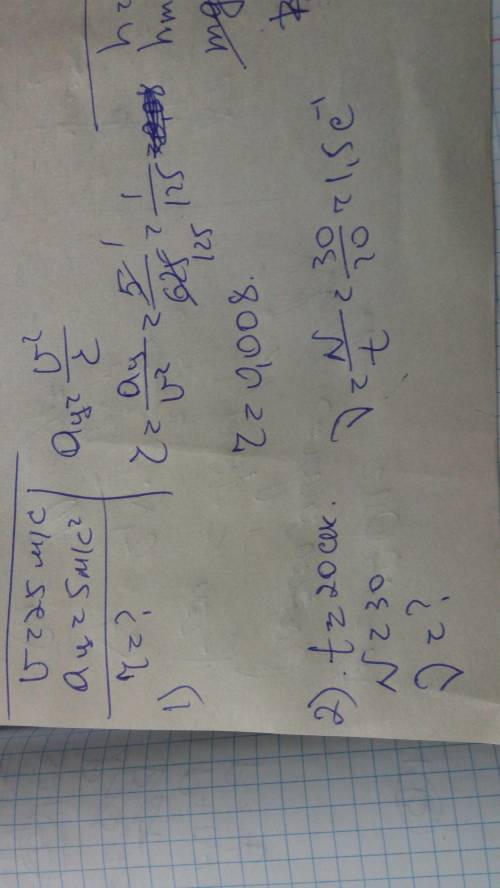 υ = 25 м/с
aц = 5 м/с²
r = ?
aц = υ²/r
1)
r = aц/υ² = 5/625 = 1/125 =
1
125
r = 0,008.
2). t = 20 сек.
N = 30
ν = ?
ν = N/t = 30/20 = 1,5 c⁻¹